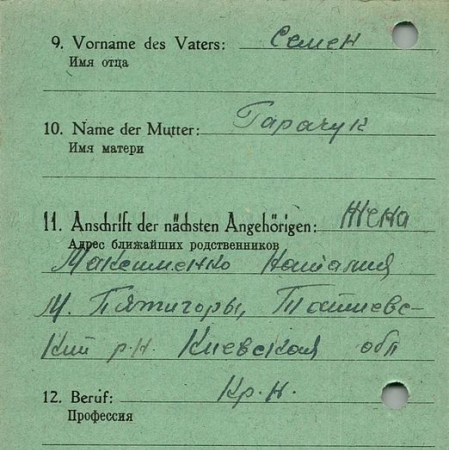 9. Vorname des Vaters: Семен
Имя отца
10. Name der Mutter: Гарачук
Имя матери
11. Anschrift der nächsten Angehörigen: Жена
Адрес ближайших родственников
Максименко Наталия
М. Пятигоры, Татиевс-
кий р.н. Киевская обл
12. Beruf: Кр.н.
Профессия